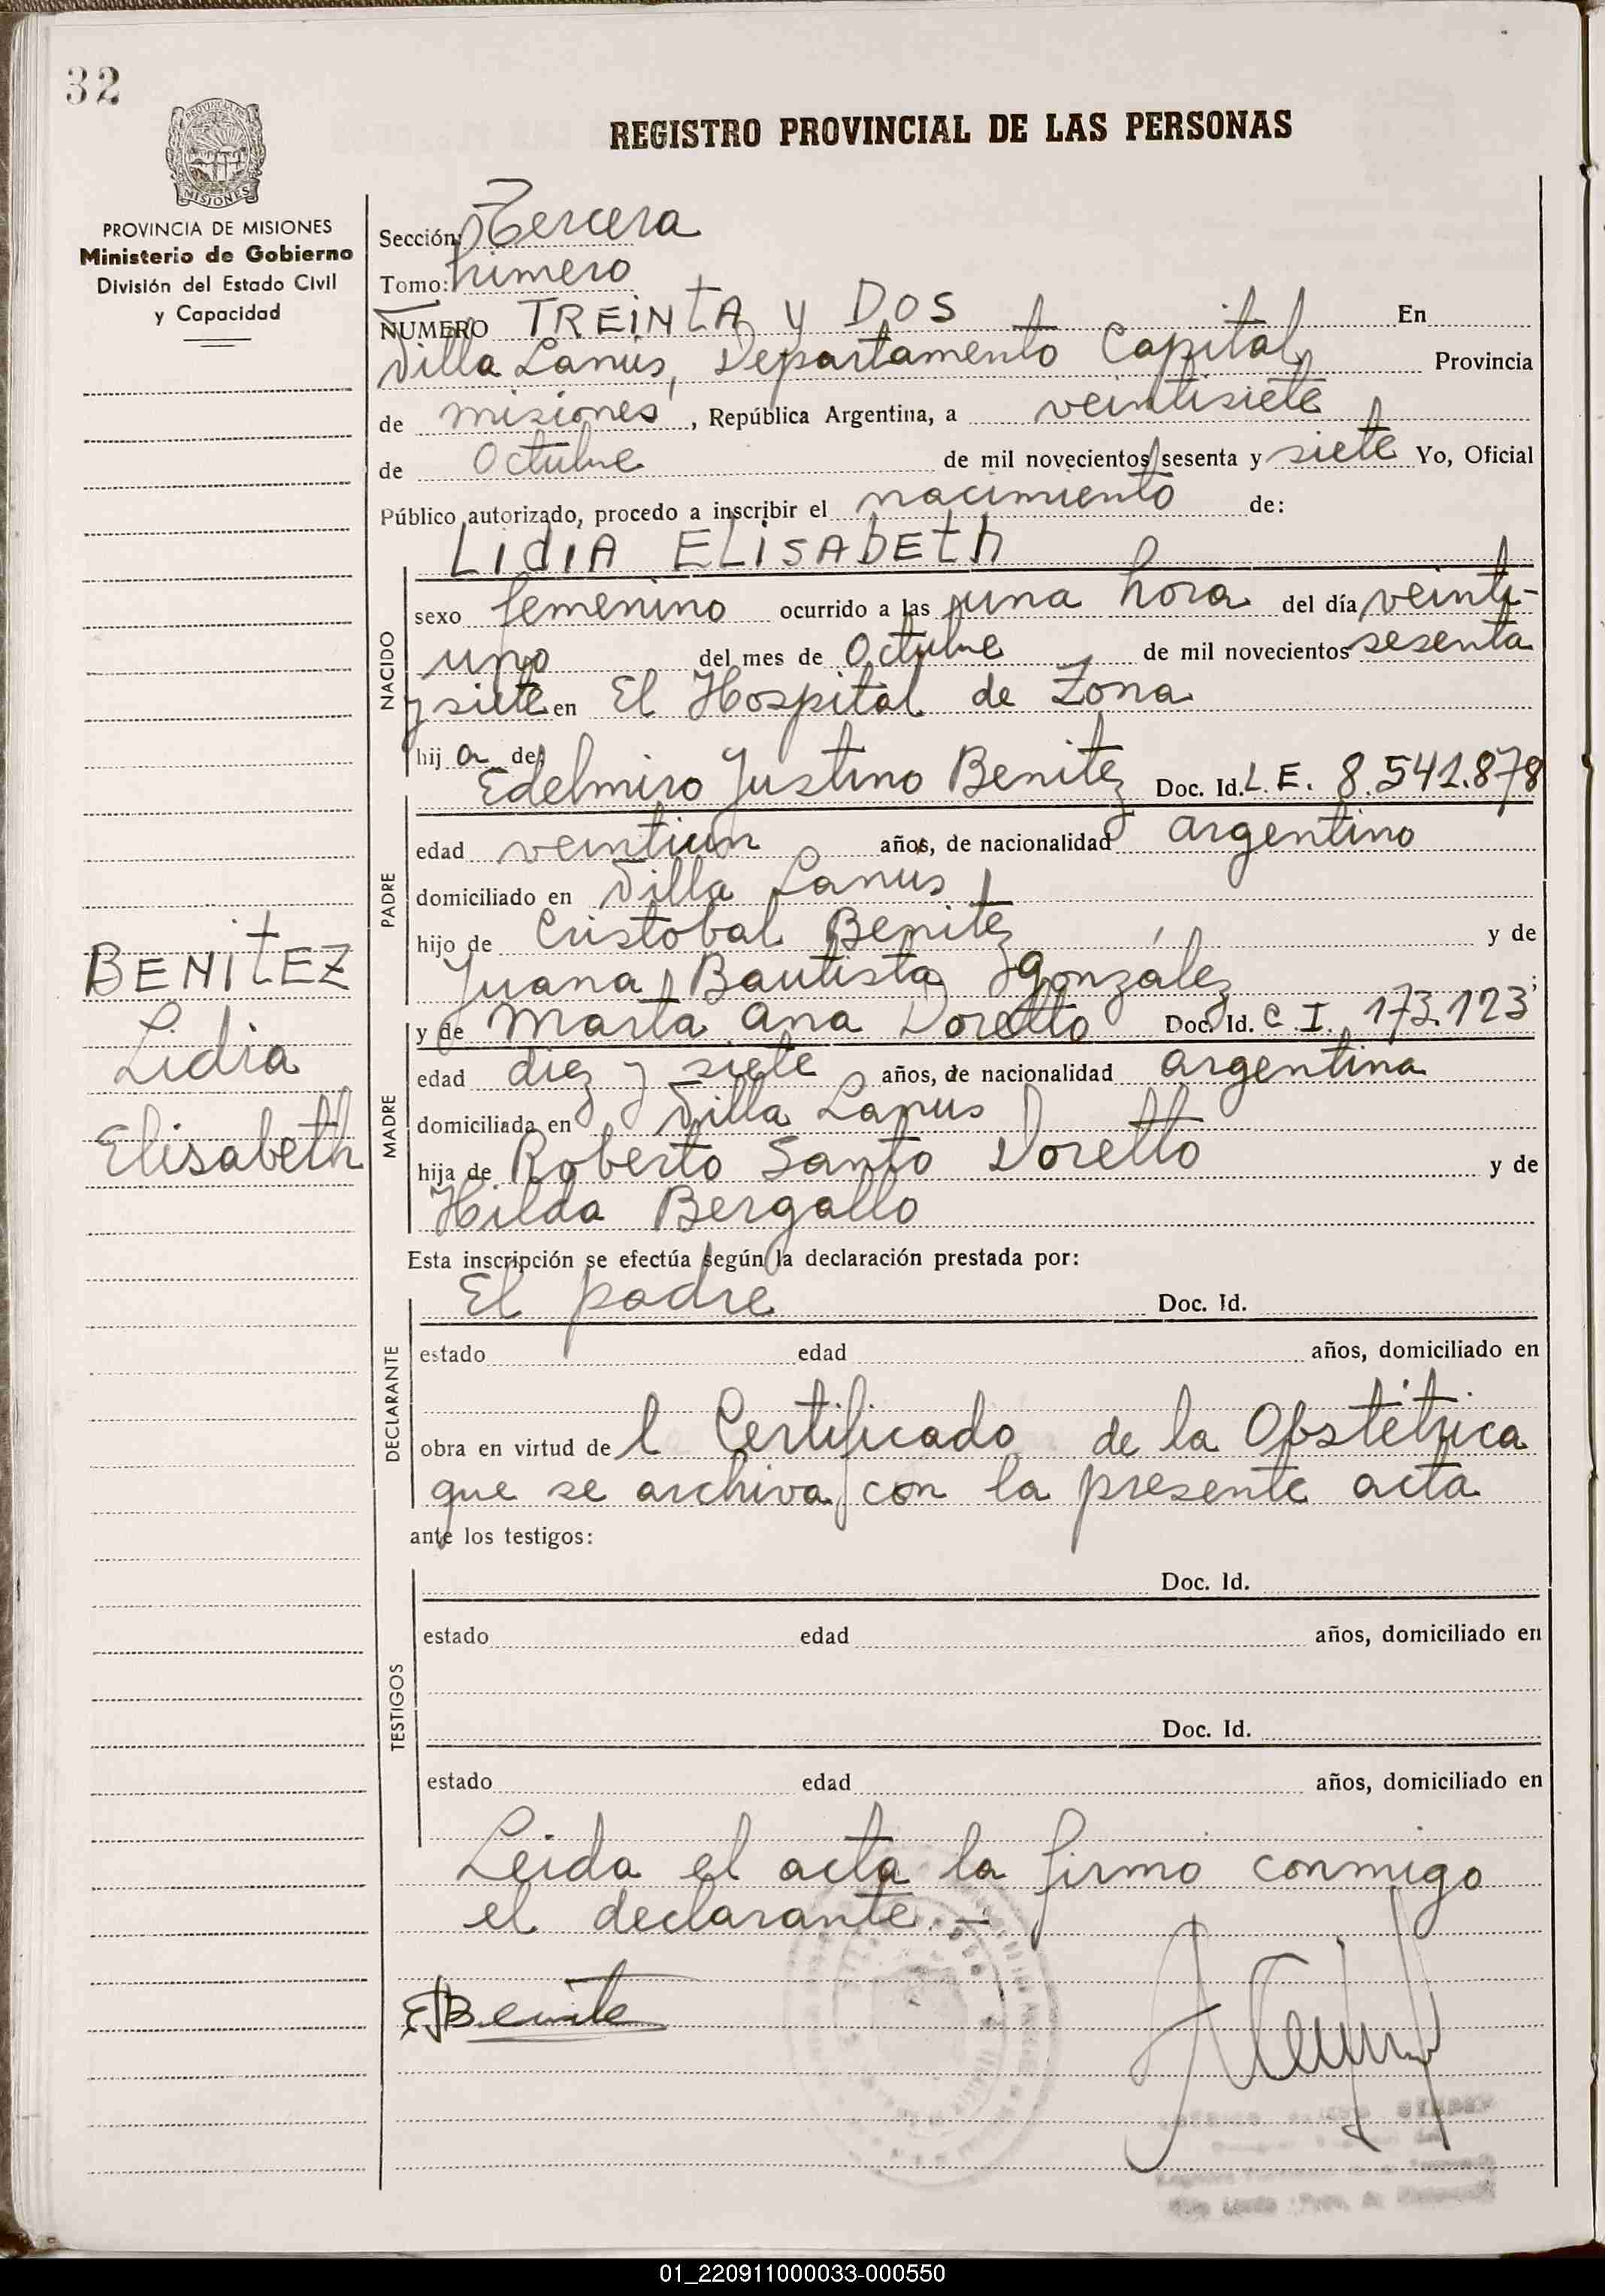 32
PROVINCIA DE
MISIONES
PROVINCIA DE MISIONES
Ministerio de Gobierno
División del Estado Civil
y Capacidad
REGISTRO PROVINCIAL DE LAS PERSONAS
Sección: Tercera
Tomo: Primero
NUMERO TREINTA y DOS En
Villa Lanús, Departamento Capital, Provincia
de misiones, República Argentina, a veintisiete
de Octubre de mil novecientos sesenta y siete Yo, Oficial
Público autorizado, procedo a inscribir el nacimiento de:
LIdIA ELISAbEth
NACIDO
sexo femenino ocurrido a las una hora del día veinti-
uno del mes de Octubre de mil novecientos sesenta
y siete en El Hospital de Zona
hija de:
Edelmiro Justino Benitez Doc. Id. L. E. 8.541.878
PADRE
edad veintiun años, de nacionalidad argentino
domiciliado en Villa Lanus
hijo de Cristobal Benitez y de
Juana Bautista gonzález;
y de Marta Ana Doretto Doc. Id. C. I. 173.123
MADRE
edad diez y siete años, de nacionalidad argentina
domiciliada en Villa Lanus
hija de Roberto Santo Doretto y de
Hilda Bergallo
BENITEZ
Lidia
Elisabeth
Esta inscripción se efectúa según la declaración prestada por:
El padre Doc. Id.
DECLARANTE
estado edad años, domiciliado en
obra en virtud del Certificado de la Obstétrica
que se archiva con la presente acta
ante los testigos:
Doc. Id.
TESTIGOS
estado edad años, domiciliado en
Doc. Id.
estado edad años, domiciliado en
Leida el acta la firmo conmigo
el declarante. -
EJBenite
01_220911000033-000550